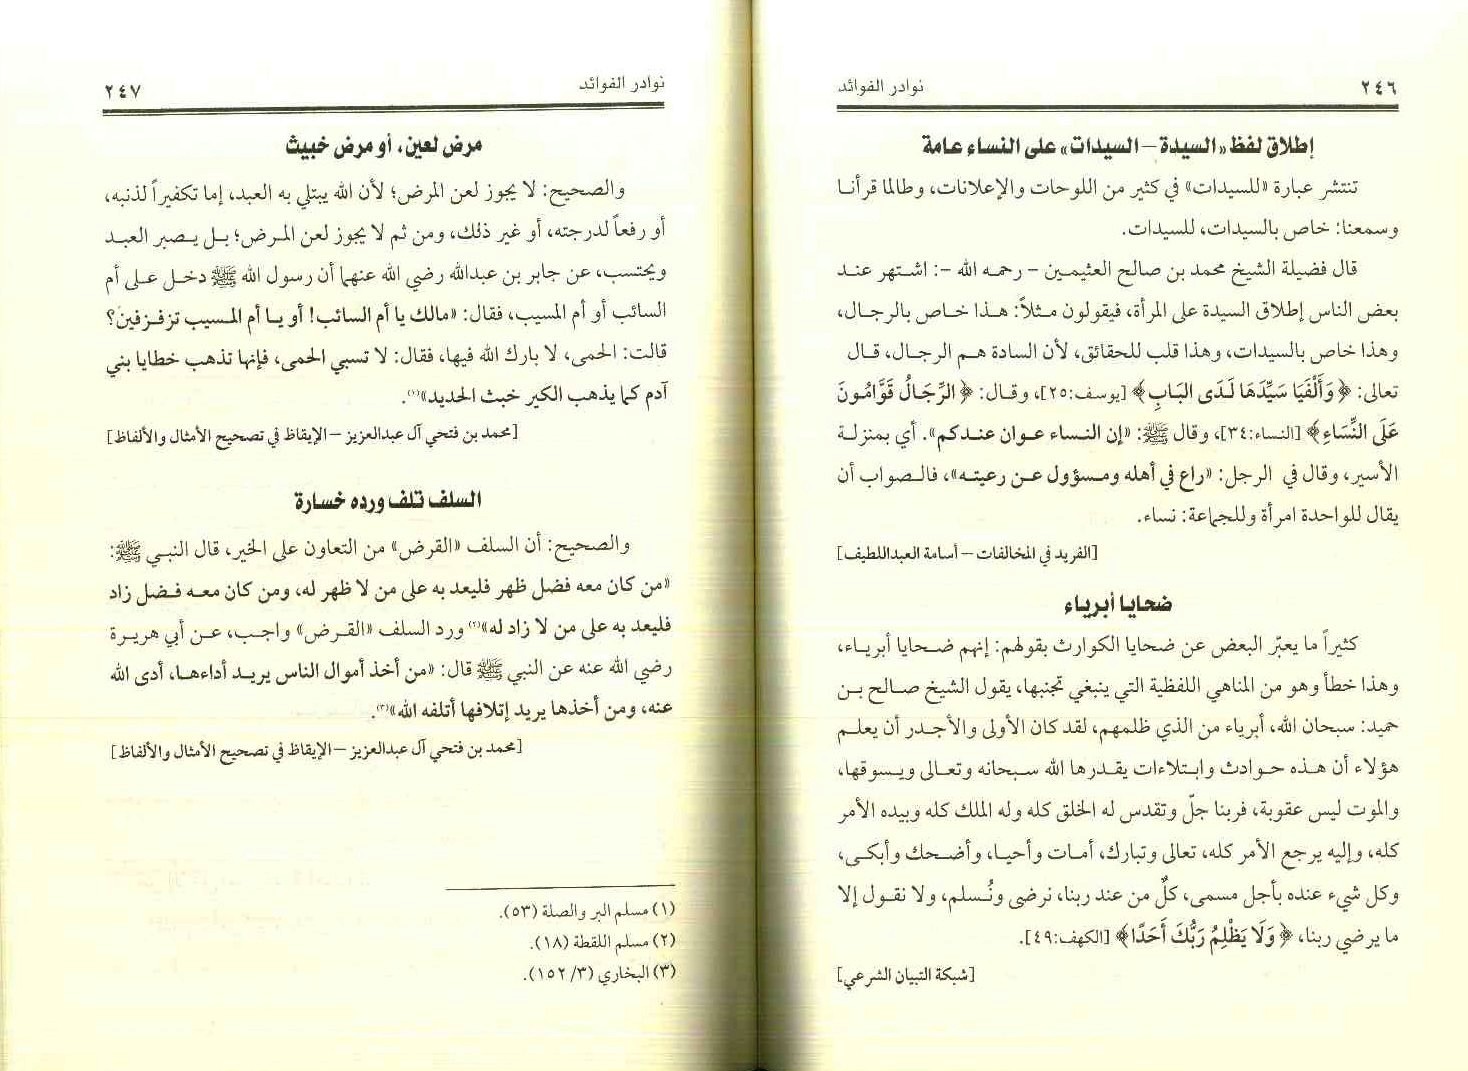 ٢٤٦
نوادر الفوائد
إطلاق لفظ «السيدة – السيدات» على النساء عامة
تنتشر عبارة «للسيدات» في كثير من اللوحات والإعلانات، وطالما قرأنا
وسمعنا: خاص بالسيدات، للسيدات.
قال فضيلة الشيخ محمد بن صالح العثيمين – رحمه الله –: اشتهر عند
بعض الناس إطلاق السيدة على المرأة، فيقولون مثلاً: هذا خاص بالرجال،
وهذا خاص بالسيدات، وهذا قلب للحقائق، لأن السادة هم الرجال، قال
تعالى: ﴿وَأَلْفَيَا سَيِّدَهَا لَدَى البَابِ﴾ [يوسف:٢٥]، وقال: ﴿الرِّجَالُ قَوَّامُونَ
عَلَى النِّسَاءِ﴾ [النساء:٣٤]، وقال ﷺ: «إن النساء عوان عندكم». أي بمنزلة
الأسير، وقال في الرجل: «راع في أهله ومسؤول عن رعيته»، فالصواب أن
يقال للواحدة امرأة وللجماعة: نساء.
[الفريد في المخالفات – أسامة العبداللطيف]
ضحايا أبرياء
كثيراً ما يعبّر البعض عن ضحايا الكوارث بقولهم: إنهم ضحايا أبرياء،
وهذا خطأ وهو من المناهي اللفظية التي ينبغي تجنبها، يقول الشيخ صالح بن
حميد: سبحان الله، أبرياء من الذي ظلمهم، لقد كان الأولى والأجدر أن يعلم
هؤلاء أن هذه حوادث وابتلاءات يقدرها الله سبحانه وتعالى ويسوقها،
والموت ليس عقوبة، فربنا جلّ وتقدس له الخلق كله وله الملك كله وبيده الأمر
كله، وإليه يرجع الأمر كله، تعالى وتبارك، أمات وأحيا، وأضحك وأبكى،
وكل شيء عنده بأجل مسمى، كلٌ من عند ربنا، نرضى ونُسلم، ولا نقول إلا
ما يرضي ربنا، ﴿وَلَا يَظْلِمُ رَبُّكَ أَحَدًا﴾ [الكهف:٤٩].
[شبكة التبيان الشرعي]
نوادر الفوائد
٢٤٧
مرض لعين، أو مرض خبيث
والصحيح: لا يجوز لعن المرض؛ لأن الله يبتلي به العبد، إما تكفيراً لذنبه،
أو رفعاً لدرجته، أو غير ذلك، ومن ثم لا يجوز لعن المرض؛ بل يصبر العبد
ويحتسب، عن جابر بن عبدالله رضي الله عنهما أن رسول الله ﷺ دخل على أم
السائب أو أم المسيب، فقال: «مالك يا أم السائب! أو يا أم المسيب تزفزفين؟
قالت: الحمى، لا بارك الله فيها، فقال: لا تسبي الحمى، فإنها تذهب خطايا بني
آدم كما يذهب الكير خبث الحديد»(١).
[محمد بن فتحي آل عبدالعزيز – الإيقاظ في تصحيح الأمثال والألفاظ]
السلف تلف ورده خسارة
والصحيح: أن السلف «القرض» من التعاون على الخير، قال النبي ﷺ:
«من كان معه فضل ظهر فليعد به على من لا ظهر له، ومن كان معه فضل زاد
فليعد به على من لا زاد له»(٢) ورد السلف «القرض» واجب، عن أبي هريرة
رضي الله عنه عن النبي ﷺ قال: «من أخذ أموال الناس يريد أداءها، أدى الله
عنه، ومن أخذها يريد إتلافها أتلفه الله»(٣).
[محمد بن فتحي آل عبدالعزيز – الإيقاظ في تصحيح الأمثال والألفاظ]
(١) مسلم البر والصلة (٥٣).
(٢) مسلم اللقطة (١٨).
(٣) البخاري (٣/ ١٥٢).